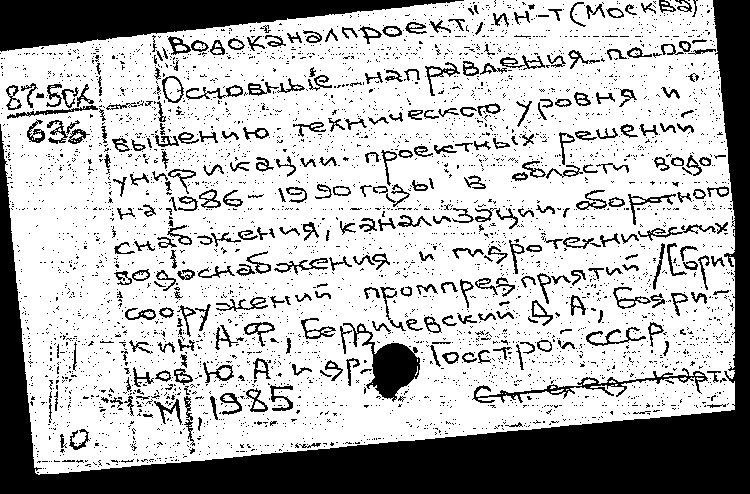 "Водоканалпроект", ин-т (Москва)
87-5DK
636
Основные направления по по-
вышению технического уровня и
унификации проектных решений
на 1986-1990 годы в области водо-
снабжения, канализации, оборотного
водоснабжения и гидротехнических
сооружений промпредприятий /[Брит
кин А.Ф., Бердичевский Д.А., Бояри-
нов Ю.А. и др. Госстрой СССР,
-М, 1985.
См. след. карт.
10